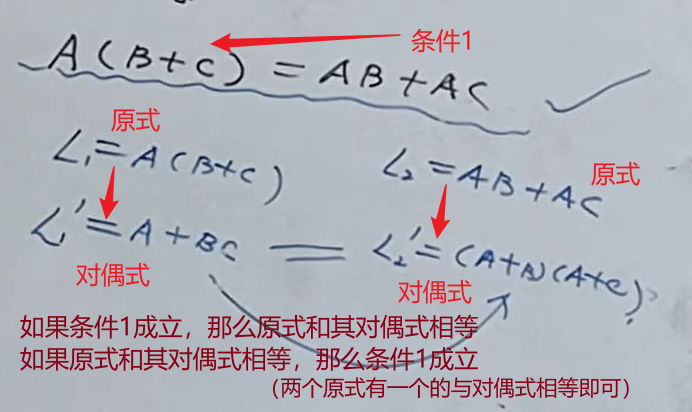 条件1
A(B+C)=AB+AC ✓
原式
L₁=A(B+C) L₂=AB+AC 原式
L₁'=A+BC = L₂'=(A+B)(A+C)?
对偶式 对偶式
如果条件1成立，那么原式和其对偶式相等
如果原式和其对偶式相等，那么条件1成立
（两个原式有一个的与对偶式相等即可）